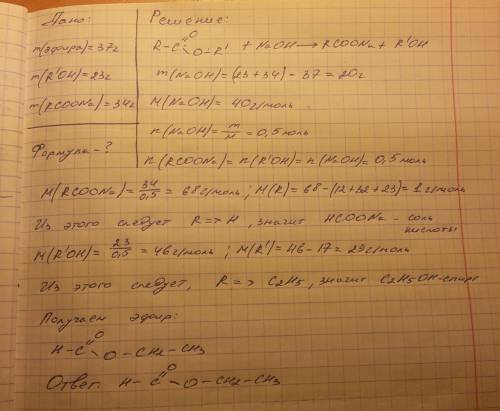 Дано:
m(эфира)=37г
m(R'OH)=23г
m(RCOONa)=34г
Формула-?
Решение:
R-C(=O)-O-R' + NaOH → RCOONa + R'OH
m(NaOH)=(23+34)-37=20г
M(NaOH)=40г/моль
n(NaOH)=m/M=0,5моль
n(RCOONa)=n(R'OH)=n(NaOH)=0,5моль
M(RCOONa)=34/0,5=68г/моль; M(R)=68-(12+32+23)=1г/моль
Из этого следует R=>H, значит HCOONa - соль кислоты
M(R'OH)=23/0,5=46г/моль; M(R')=46-17=29г/моль
Из этого следует, R=> C2H5, значит C2H5OH-спирт
Получаем эфир:
H-C(=O)-O-CH2-CH3
Ответ: H-C(=O)-O-CH2-CH3